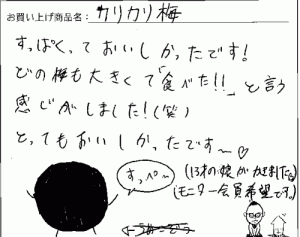 お買い上げ商品名：カリカリ梅
すっぱくっておいしかったです！
どの梅も大きくて「食べた!!」と言う
感じがしました！(笑)
とってもおいしかったです〜♡
すっぺ〜
(13才の娘がかきました。)
(モニター会員希望です。)